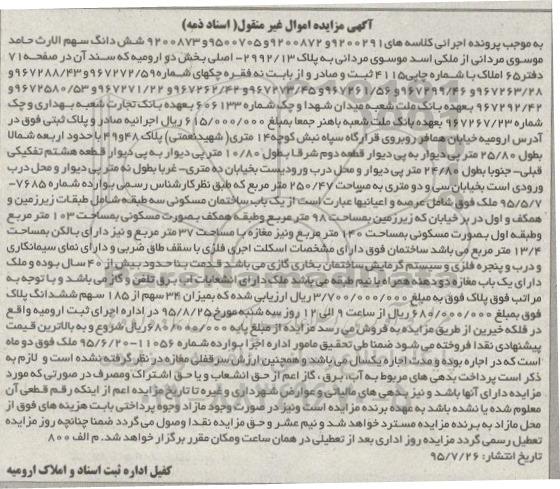 آگهی مزایده اموال غیر منقول( اسناد ذمه)
به موجب پرونده اجرائی کلاسه های ۹۲۰۰۲۹۱و ۹۲۰۰۸۷۲و ۹۵۰۰۷۰۵و ۹۲۰۰۸۷۳ شش دانگ سهم الارث حامد
موسوی مردانی از ملکی اسد موسوی مردانی به پلاک ۲۹۹۲/۱۳- اصلی بخش دو ارومیه که سند آن در صفحه ۷۱
دفتر ۶۵ املاک با شماره چاپی ۴۱۱۵ ثبت و صادر و از بابت نه فقره چکهای شماره ۹۶۷۲۷۲/۵۹و ۹۶۷۲۸۸/۴۳و
۹۶۷۲۶۳/۲۸و ۹۶۷۲۹۹/۴۶و ۹۶۷۲۶۱/۵۶و ۹۶۷۲۷۳/۴۵و ۹۶۷۲۶۲/۴۲و ۹۶۷۲۷۱/۲۲و ۹۶۷۲۵۸۰/۵۳و
۹۶۷۲۹۲/۴۲ بعهده بانک ملت شعبه میدان شهدا و چک شماره ۶۰۶۱۳۳ بعهده بانک تجارت شعبه بهداری و چک
شماره ۹۶۷۲۶۷/۲۳ بعهده بانک ملت شعبه باهنر جمعا بمبلغ ۶۱۵/۰۰۰/۰۰۰ ریال اجرائیه صادر و پلاک ثبتی فوق در
آدرس ارومیه خیابان مسافر روبروی قرارگاه سپاه نبش کوچه ۱۴ متری( شهید نعمتی) پلاک ۴۸و۴۹ با حدود اربعه شمالا
بطول ۲۵/۸۰ متر پی دیوار به پی دیوار قطعه دوم شرقا بطول ۱۰/۸۰ متر پی دیوار به پی دیوار قطعه هشتم تفکیکی
قبلی- جنوبا بطول ۲۴/۸۰ متر پی دیوار و محل درب ورودیست بخیابان ده متری- غربا بطول نه متر پی دیوار و محل درب
ورودی است بخیابان سی و دو متری به مساحت ۲۵۰/۴۷ متر مربع که طبق نظر کارشناس رسمی بوارده شماره ۷۶۸۵-
۹۵/۵/۷ ملک فوق شامل عرصه و اعیانیها عبارت است از یک باب ساختمان مسکونی سه طبقه شامل طبقات زیرزمین و
همکف و اول در بر خیابان که زیرزمین بمساحت ۹۸ متر مربع وطبقه همکف بصورت مسکونی بمساحت ۱۰۳ متر مربع
وطبقه اول بصورت مسکونی بمساحت ۱۴۰ متر مربع ونیز مغازه با مساحت ۳۷ متر مربع و نیز دارای بالکن بمساحت
۱۳/۴ متر مربع می باشد ساختمان فوق دارای مشخصات اسکلت اجری فلزی با سقف طاق ضربی و دارای نمای سیمانکاری
و درب و پنجره فلزی و سیستم گرمایش ساختمان بخاری گازی می باشد قدمت بنا حدود بیش از ۴۰ سال بوده و ملک
دارای یک باب مغازه دو دهنه همراه با نیم طبقه می باشد ملک دارای انشعابات اب برق تلفن و گاز می باشد و با توجه به
مراتب فوق پلاک فوق به مبلغ ۳/۷۰۰/۰۰۰/۰۰۰ ریال ارزیابی شده که بمیزان ۳۴ سهم از ۱۸۵ سهم ششدانگ پلاک
فوق بمبلغ ۶۸۰/۰۰۰/۰۰۰ ریال از ساعت ۹ الی ۱۲ روز سه شنبه مورخ ۹۵/۸/۲۵ در اداره اجرای ثبت ارومیه واقع
در فلکه خیرین از طریق مزایده به فروش می رسد مزایده از مبلغ پایه ۶۸۰/۰۰۰/۰۰۰ریال شروع و به بالاترین قیمت
پیشنهادی نقدا فروخته می شود ضمنا طی تحقیق مامور اداره اجرا بوارده شماره ۱۱۰۵۶-۹۵/۶/۲۰ ملک فوق دو ماه
است که در اجاره بوده و مدت اجاره یکسال می باشد و همچنین ارزش سرقفلی مغازه در نظر گرفته نشده است و لازم به
ذکر است پرداخت بدهی های مربوط به آب، برق ، گاز اعم از حق انشعاب و یا حق اشتراک ومصرف در صورتی که مورد
مزایده دارای آنها باشد و نیز بدهی های مالیاتی و عوارض شهرداری و غیره تا تاریخ مزایده اعم از اینکه رقم قطعی آن
معلوم شده یا نشده باشد به عهده برنده مزایده است ونیز در صورت وجود مازاد وجوه پرداختی بابت هزینه های فوق از
محل مازاد به برنده مزایده مسترد خواهد شد و نیم عشر و حق مزایده نقدا وصول می گردد ضمنا چنانچه روز مزایده
تعطیل رسمی گردد مزایده روز اداری بعد از تعطیلی در همان ساعت ومکان مقرر برگزار خواهد شد. م الف ۸۰۰
تاریخ انتشار: ۹۵/۷/۲۶
کفیل اداره ثبت اسناد و املاک ارومیه